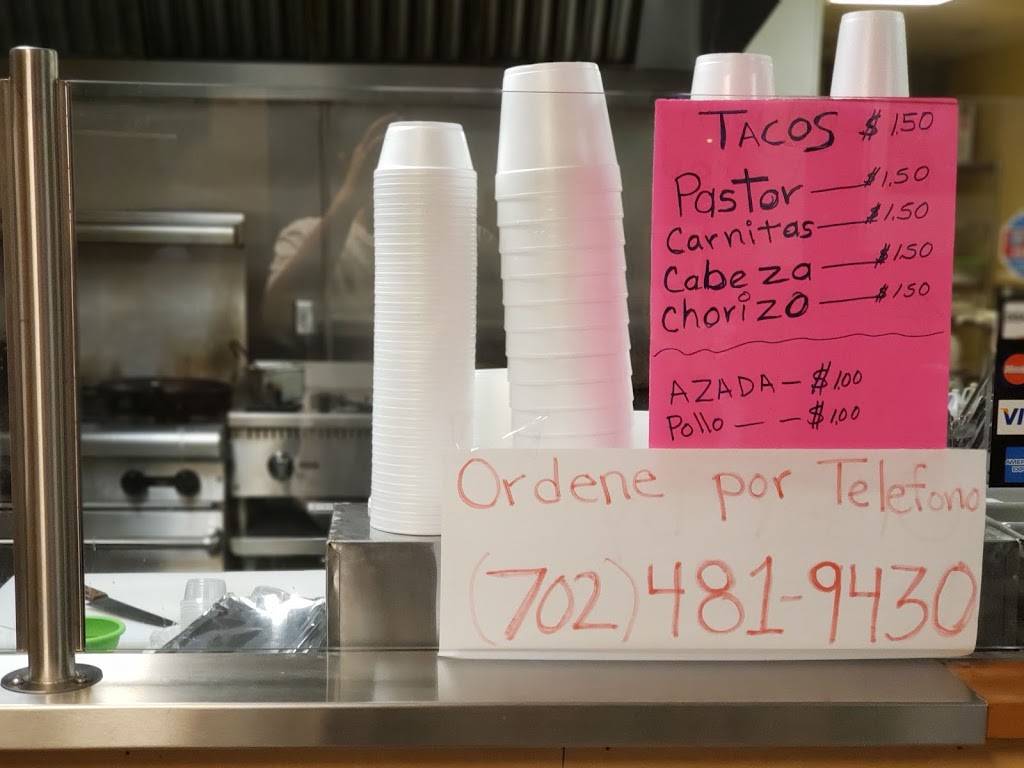 TACOS $ 1.50
Pastor — $1.50
Carnitas — $1.50
Cabeza — $1.50
chorizo — $1.50
AZADA — $1.00
Pollo — — $1.00
Ordene por Telefono
(702) 481-9430
VI